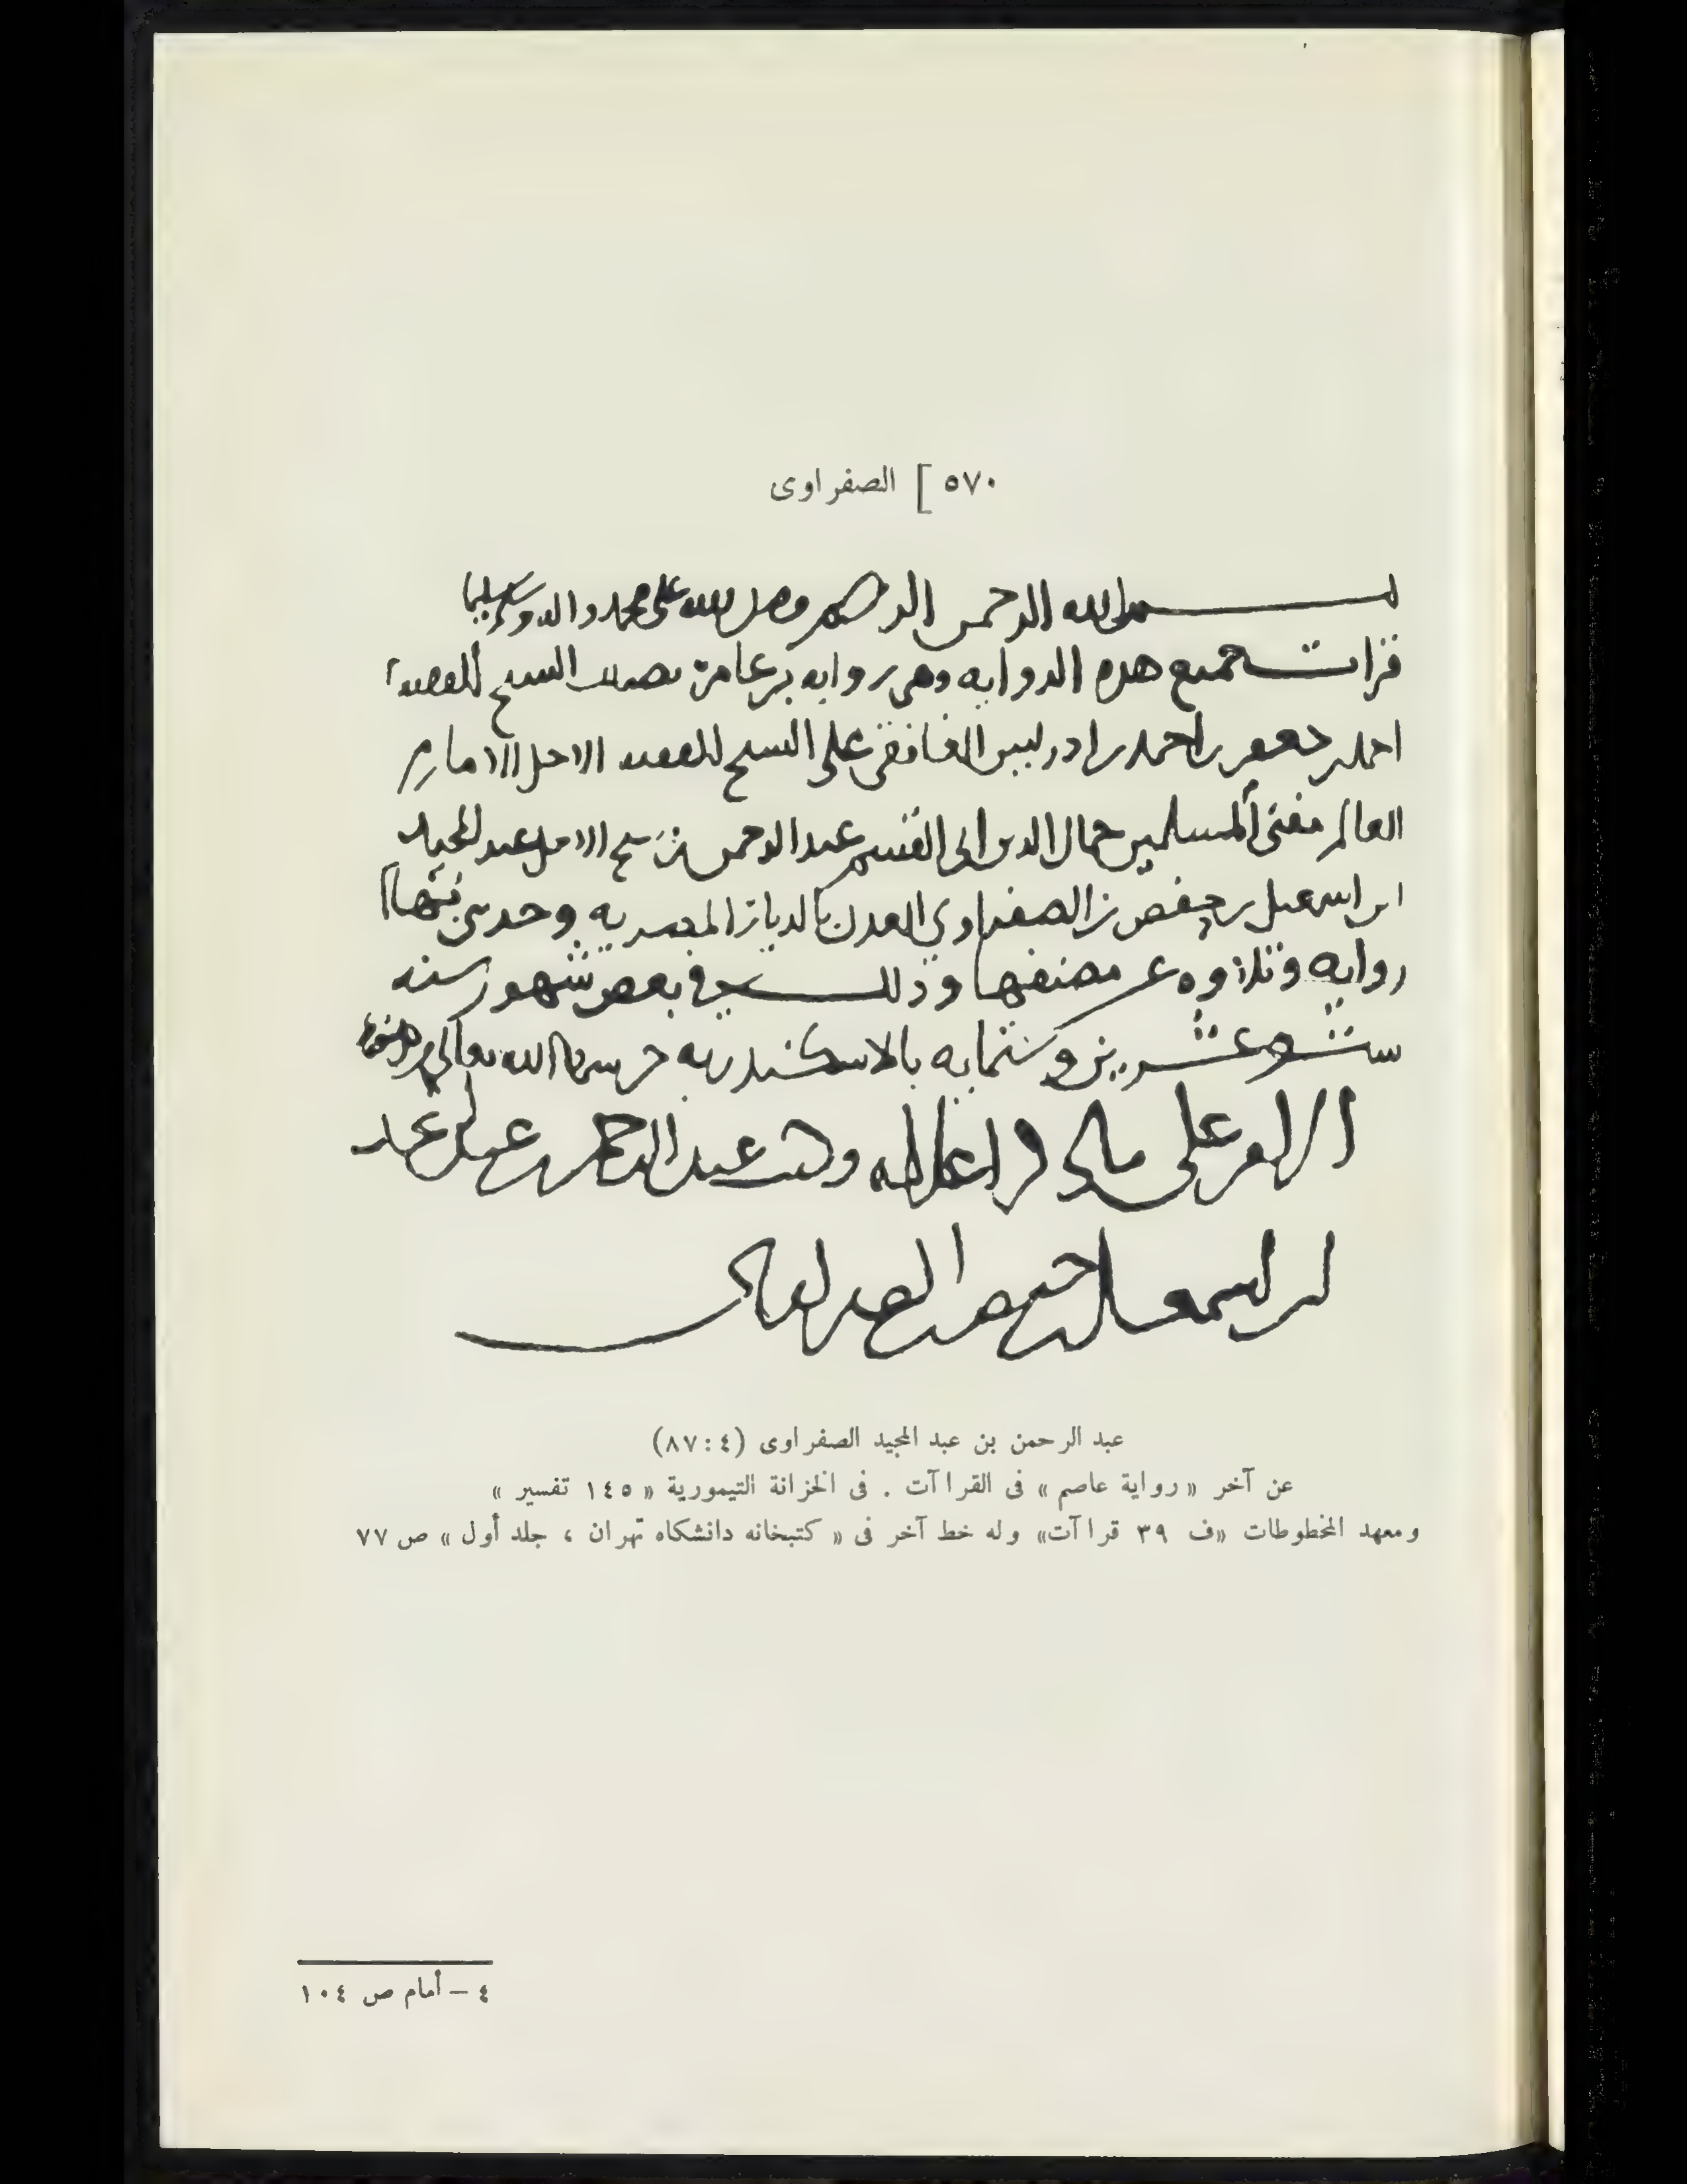 ٥٧٠ ] الصفراوى
بسم الله الرحمن الرحيم وصلى الله على محمد واله وسلم تسليما
قرات جميع هذه الروايه وهي روايه عاصم الشيخ الفقيه
احمد بن جعفر بن احمد بن ادريس الغافقي على الشيخ الفقيه الاجل الامام
العالم مفتى المسلمين جمال الدين ابى القسم عبد الرحمن بن الشيخ عبد المجيد
ابن اسمعيل بن حفص الصفراوي بالديار المصريه وحدثني بها
روايه وتلاوه عن مصنفها وذلك في بعض شهور سنه
ست وعشرين وستمايه بالاسكندريه حرسها الله تعالى
الامر على ما ذكر اعلاه وكتب عبد الرحمن بن عبد المجيد
بن اسمعيل بن حفص الصفراوي
عبد الرحمن بن عبد المجيد الصفراوى (٤ : ٨٧)
عن آخر « رواية عاصم » فى القراآت . فى الخزانة التيمورية « ١٤٥ تفسير »
ومعهد المخطوطات «ف ٣٩ قراآت» وله خط آخر فى « كتبخانه دانشكاه تهران ، جلد أول » ص ٧٧
٤ – أمام ص ١٠٤